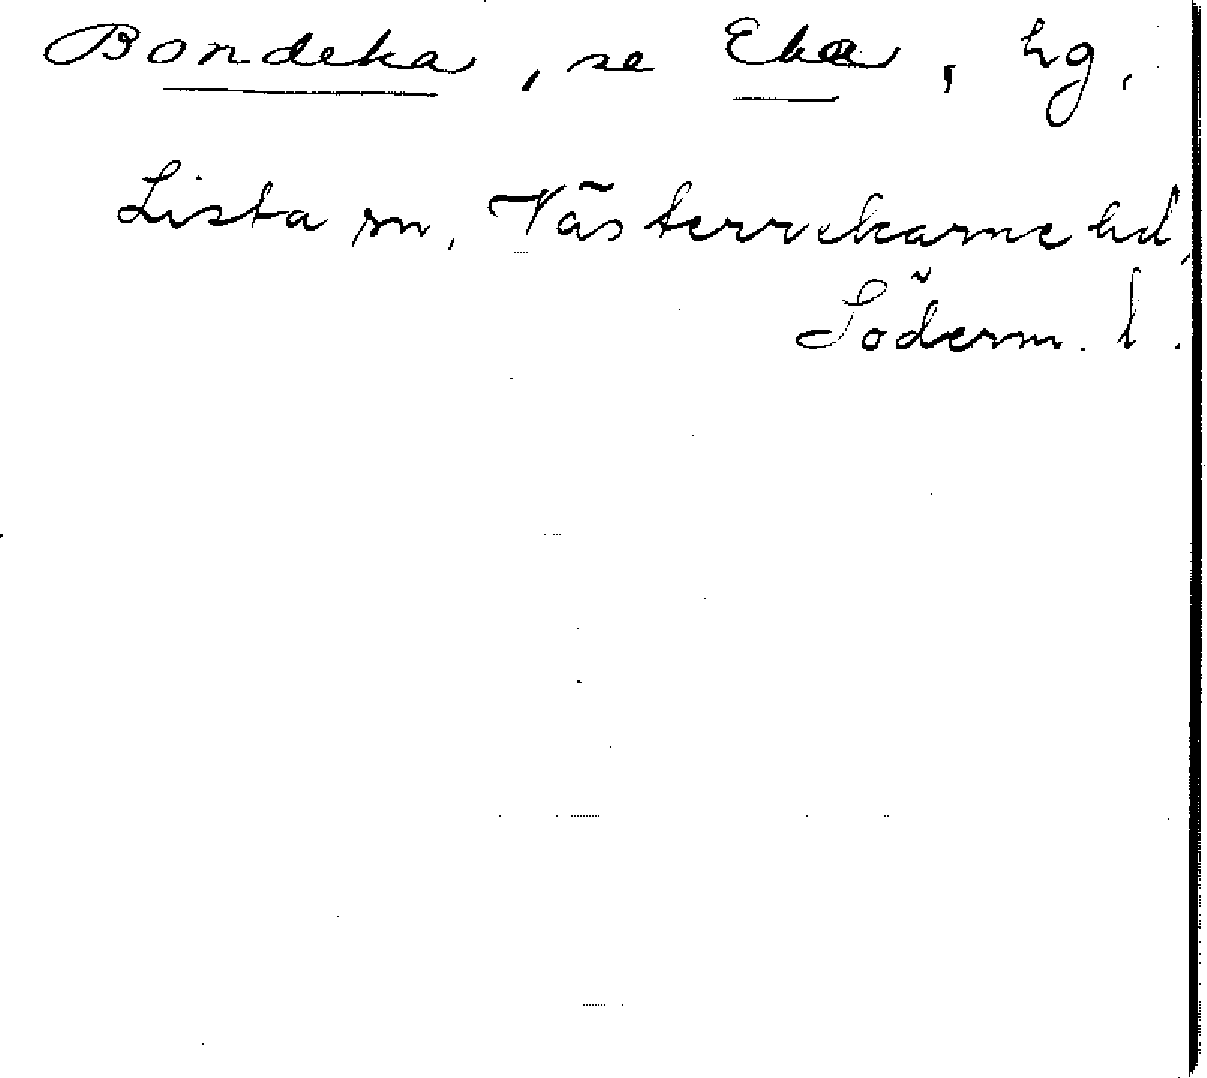 Bondeka, se Eka, hg,
Lista sn, Västerrekarne hd,
Söderm. l.